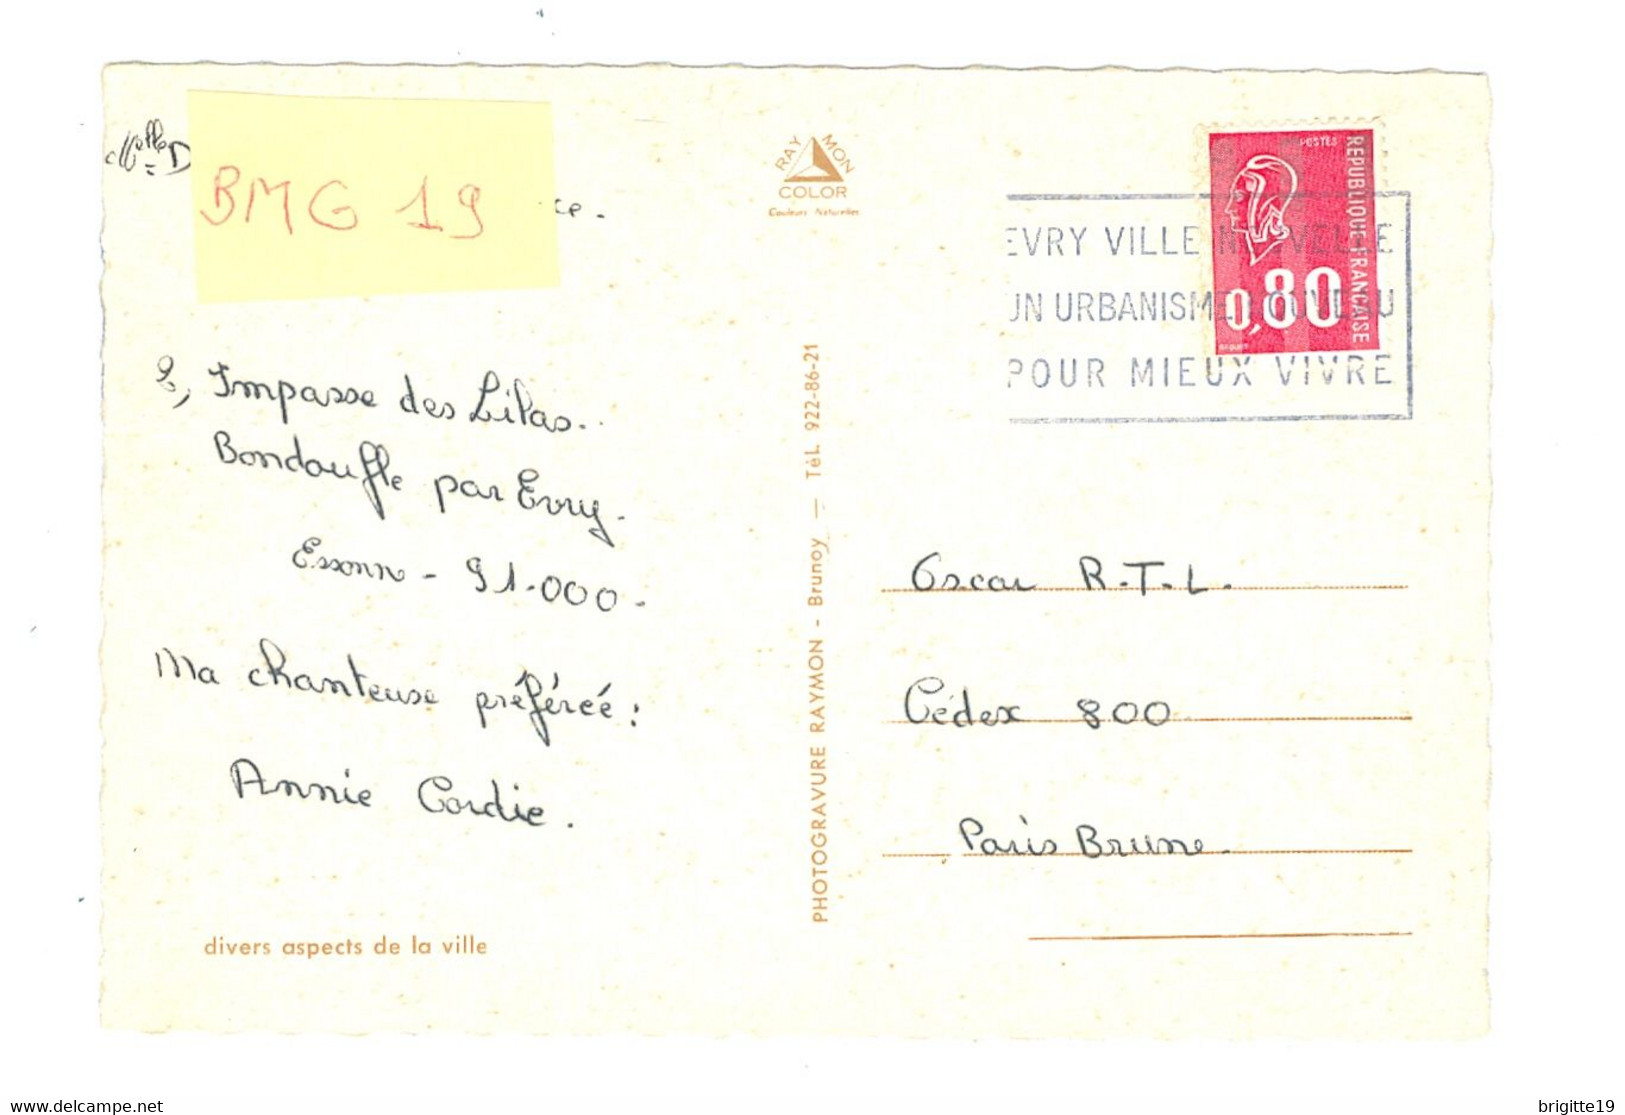 Melle D
BMG 19
ce.
2, Impasse des Lilas.
Bondoufle par Evry.
Essonne - 91.000.
Ma chanteuse préférée :
Annie Cordie.
divers aspects de la ville
RAYMON
COLOR
Couleurs Naturelles
PHOTOGRAVURE RAYMON - Brunoy — Tél. 922-86-21
POSTES
REPUBLIQUE FRANCAISE
0,80
EVRY VILLE NOUVELLE
UN URBANISME NOUVEAU
POUR MIEUX VIVRE
Oscar R.T.L.
Cédex 800
Paris Brune.
www.delcampe.net
brigitte19